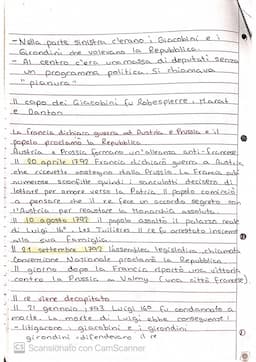 - Nella parte sinistra c'erano i Giacobini e i
Girondini che volevano la Repubblica.
- Al centro c'era una massa di deputati senza
un programma politico. Si chiamava
"pianura"
Il capo dei Giacobini fu Robespierre, Marat
e Danton
La Francia dichiara guerra ad Austria e Prussia e il
popolo proclamò la Repubblica
Austria e Prussia formano un'alleanza anti-francese.
Il 20 aprile 1792 Francia dichiarò guerra a Austria
che ricevette sostegno dalla Prussia. La Francia subì
numerose sconfitte quindi i sanculotti decisero di
lottare per amore verso la Patria. Il popolo cominciò
a pensare che il re fece un accordo segreto con
l'Austria per resettare la monarchia assoluta.
Il 10 agosto 1792 il popolo assaltò il palazzo reale
di Luigi 16°. Les Tuilieries. Il re fu arrestato insieme
alla sua famiglia.
Il 21 settembre 1792 l'assemblea legislativa, chiamata
Convenzione Nazionale proclamò la Repubblica.
Il giorno dopo la Francia riportò una vittoria
contro la Prussia a Valmy (una città francese)
Il re viene decapitato
Il 21 gennaio 1793 Luigi 16° fu condannato a
morte. La morte di Luigi ebbe conseguenze:
- litigarono i giacobini e i girondini
girondini difendevano il re
CS Scansionato con CamScanner